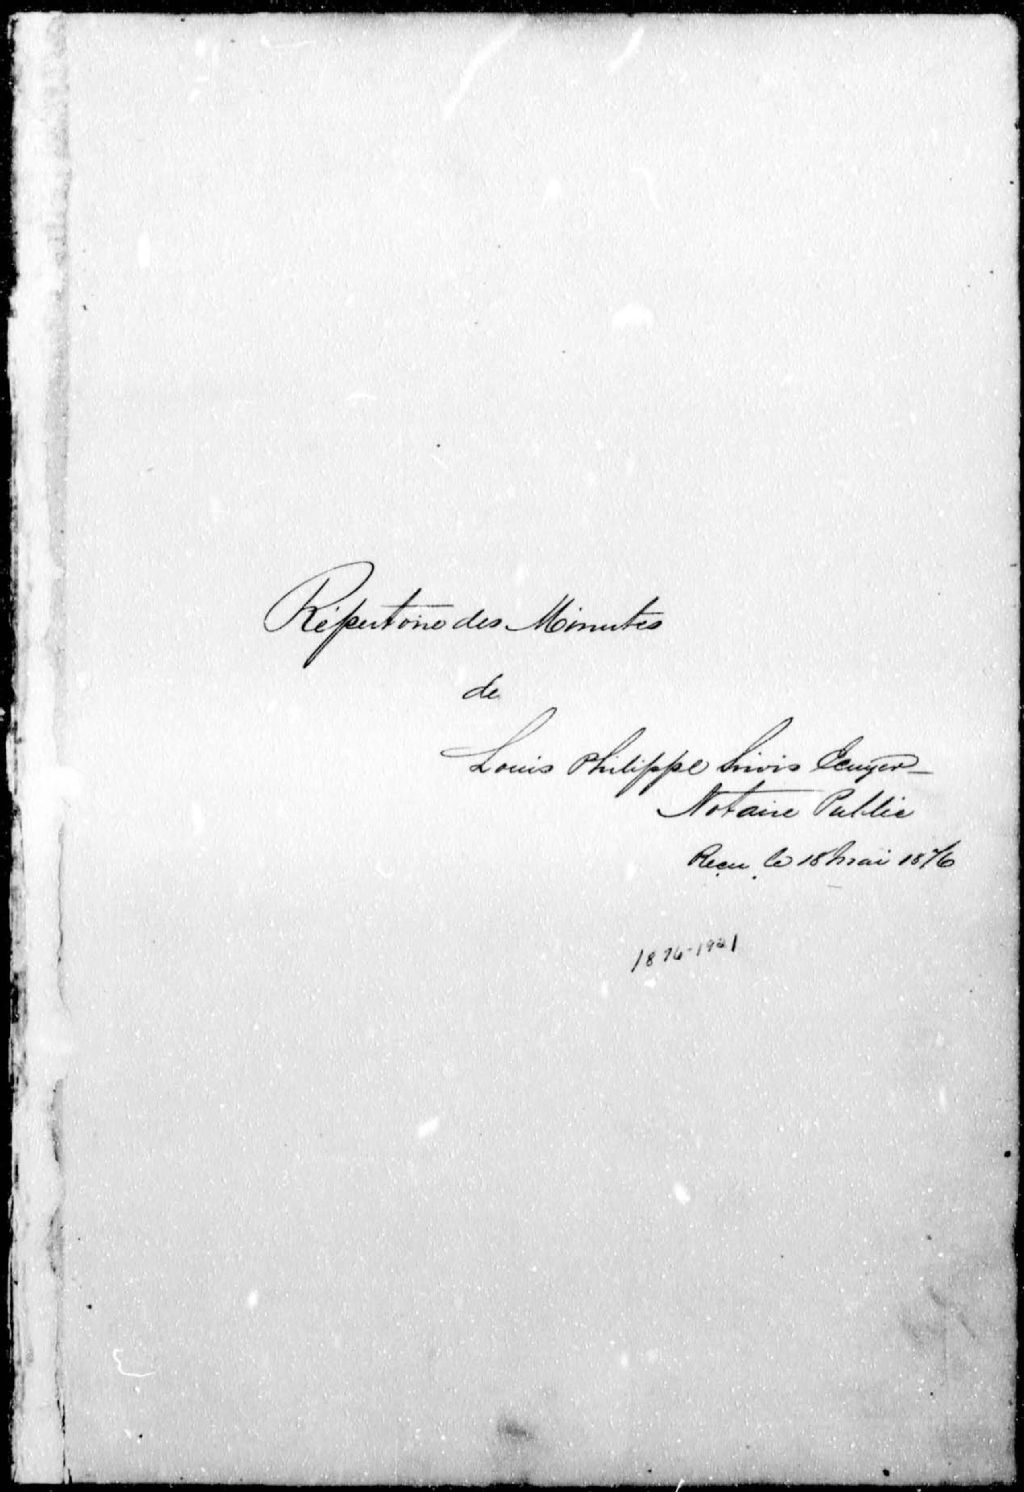 Répertoire des Minutes
de
Louis Philippe Sirois Ecuyer
Notaire Public
Reçu le 18 mai 1876
1876-1921